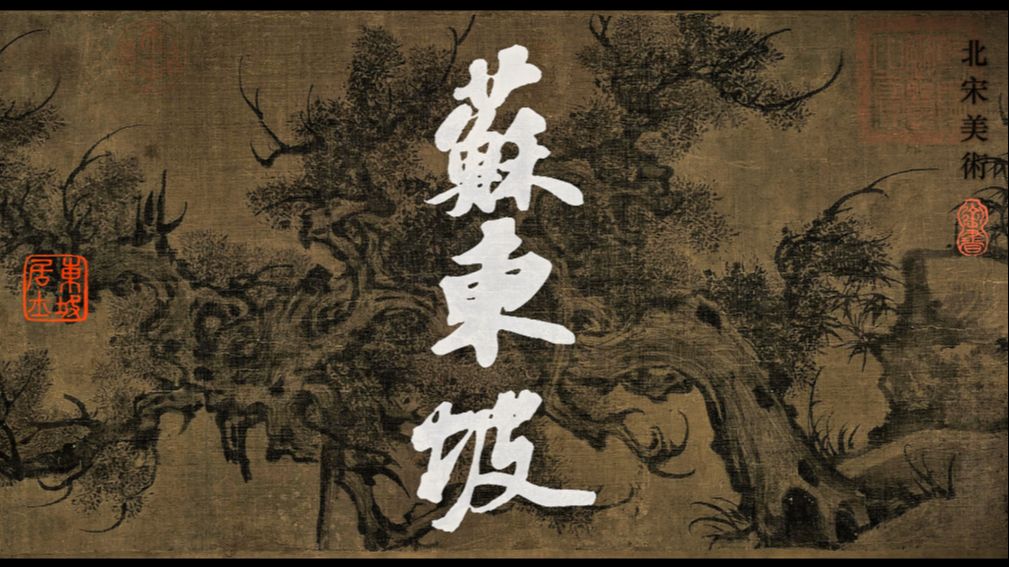 北宋美術
蘇東坡
東坡
居士